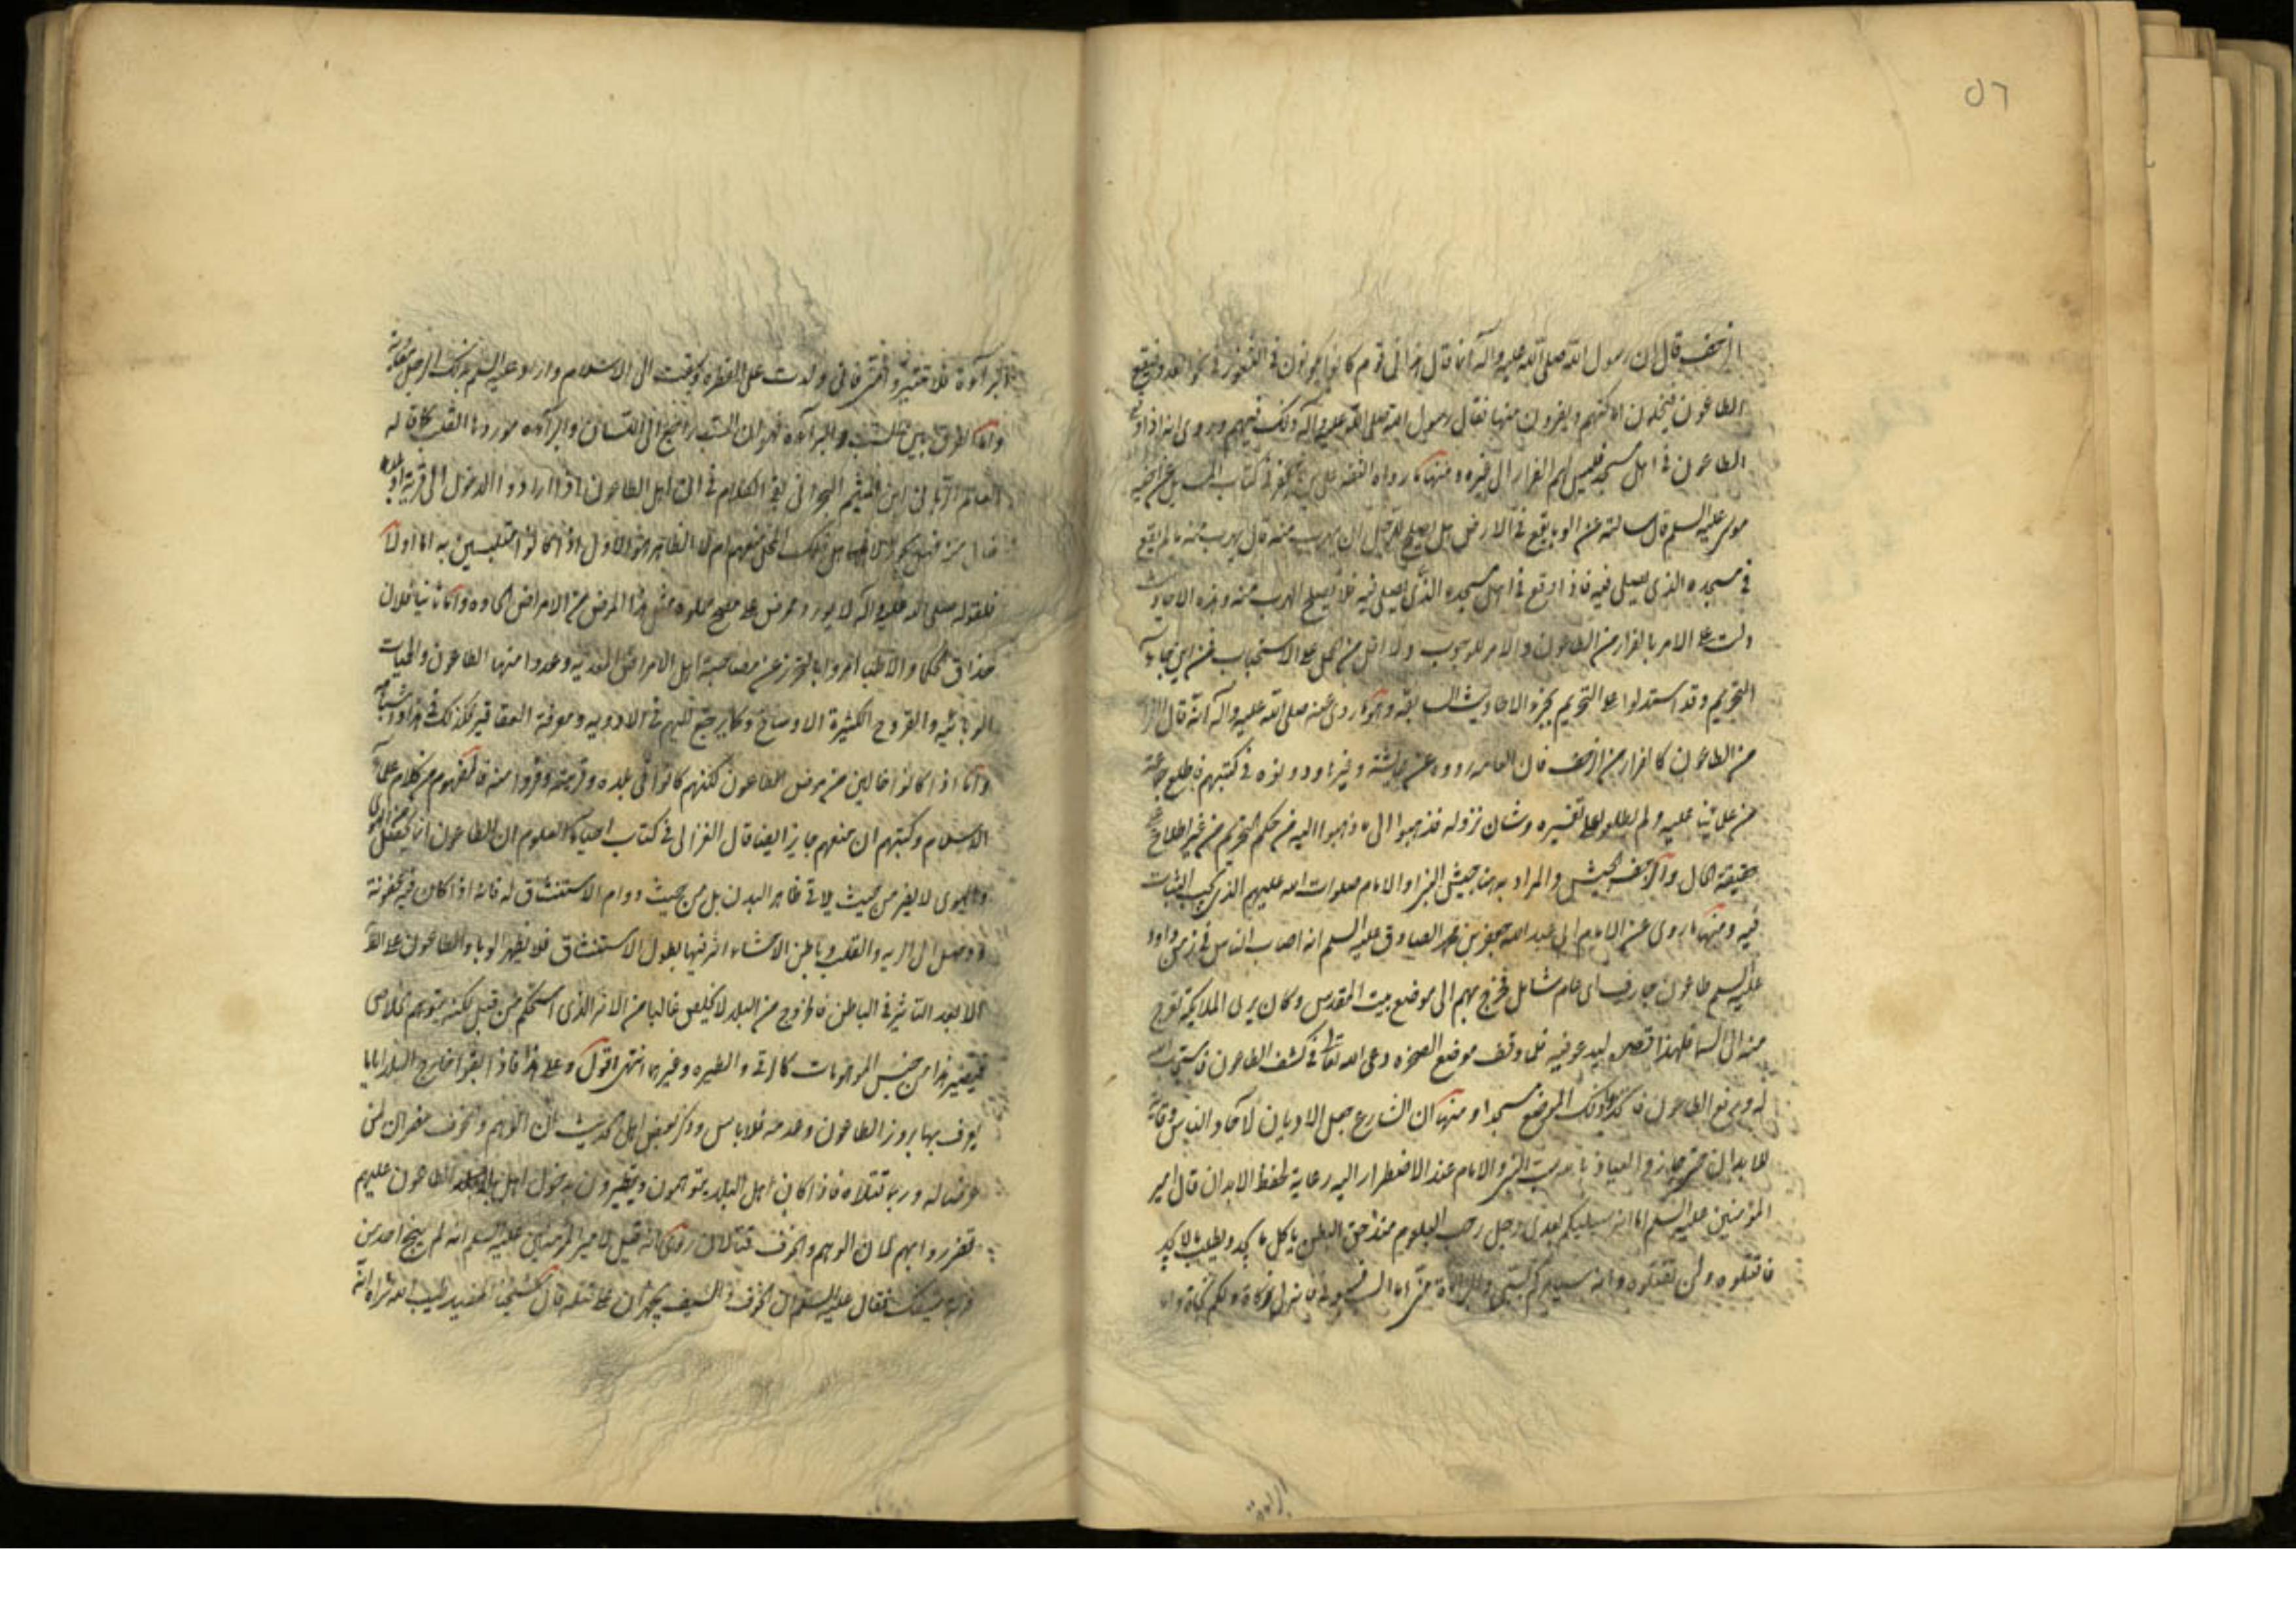 ٥٦
الزحف قال ان رسول الله صلى الله عليه واله انما قال هذا في قوم كانوا يكونون في الثغور في نحو العدو فيقع
الطاعون فيخلون اماكنهم ويفرون منها فقال رسول الله صلى الله عليه واله ذلك فيهم وروى انه اذا وقع
الطاعون في اهل مسجد فليس لهم الفرار الى غيره ومنها ما رواه الثقة علي بن جعفر في كتاب المسايل عن اخيه
موسى عليه السلم قال سالته عن الوبا يقع في الارض هل يصلح للرجل ان يهرب منه قال يهرب منه ما لم يقع
في مسجده الذي يصلي فيه فاذا وقع في اهل مسجده الذي يصلي فيه فلا يصلح الهرب منه وهذه الاحاديث
دلت على الامر بالفرار من الطاعون والامر للوجوب ولا اقل من الحمل على الاستحباب فمن اين جاء
التحريم وقد استدلوا على التحريم بجزو الاحاديث السابقة وهو ما روى عنه صلى الله عليه واله انه قال الفرار
من الطاعون كالفرار من الزحف فان العامة رووه عن عايشة وغيرها ودونوه في كتبهم فاطلع جماعة
من علمائنا عليه ولم يطلعوا على تفسيره وشان نزوله فذهبوا الى ما ذهبوا اليه من حكم التحريم من غير اطلاع على
حقيقة الحال والزحف الجيش والمراد به هنا جيش النبي او الامام صلوات الله عليهم الذي يجب الثبات
فيه ومنها ما روى عن الامام ابي عبد الله جعفر بن محمد الصادق عليه السلم انه اصاب الناس في زمن داود
عليه السلم طاعون جارف اي عام شامل فخرج بهم الى موضع بيت المقدس وكان يرى الملايكة تعرج
منه الى السما فلهذا قصد ليدعو فيه فلما وقف موضع الصخرة دعى الله تعالى في كشف الطاعون فاستجاب الله
له ورفع الطاعون فاتخذوا ذلك الموضع مسجدا ومنها ان الشارع جعل الاديان لاحاد الناس وقاية
للابدان حتى جاز والعياذ بالله سب النبي والامام عند الاضطرار اليه رعاية لحفظ الابدان قال امير
المؤمنين عليه السلم اما انه سيليكم بعدي رجل رحب البلعوم مندحق البطن ياكل ما يجد ويطلب ما لا يجد
فاقتلوه ولن تقتلوه وانه سيامركم بسبي والبراءة مني اما السب فسبوني فانه لي زكاة ولكم نجاة واما
البراءة
البراءة فلا تتبرؤا مني فاني ولدت على الفطرة وسبقت الى الاسلام واراد عليه السلم بذلك الرجل معوية
واما الفرق بين السب والبراءة فهو ان السب راجع الى اللسان والبراءة موردها القلب كما قاله
العالم الرباني ابن الميثم البحراني بقي الكلام في ان اهل الطاعون اذا ارادوا الدخول الى قرية او بلدة
فلقوله صلى الله عليه واله لا يورد ممرض على مصح مثل هذا المرض من الامراض الحادة واما ثانيا فلان
حذاق الحكما والاطبا امروا بالتحرز عن مصاحبة اهل الامراض المعدية وعدوا منها الطاعون والحميات
الوبائية والقروح الكثيرة الاوساخ وكما يرجع اليهم في الادوية ومعرفة العقاقير فكذلك في هذا
واما اذا كانوا خالين من مرض الطاعون لكنهم كانوا في بلده وقريته وفروا منه فالمفهوم من كلام علماء
الاسلام وكتبهم ان منعهم جايز ايضا قال الغزالي في كتاب احياء العلوم ان الطاعون
والهوى لا يضر من حيث يلاقي ظاهر البدن بل من حيث دوام الاستنشاق له فانه اذا كان فيه عفونة
ووصل الى الرية والقلب وباطن الاحشاء اثر فيها بطول الاستنشاق فلا يظهر الوبا والطاعون على الظاهر
الا بعد التاثير في الباطن فالخروج من البلد لا يخلص غالبا من الاثر الذي استحكم من قبل لكنه يتوهم الخلاص
فيصير هذا من جنس الموهومات كالرقى والطيرة وغيرها انتهى اقول وعلى هذا فاذا بقوا خارج البلد اياما
يعرف بها بروز الطاعون وعدمه فلا باس وذكر بعض اهل الحديث ان الوهم والخوف مضران لمن
عرضا له وربما قتلاه فاذا كان اهل البلد يتوهمون ويتطيرون بدخول اهل الطاعون عليهم
تضرروا بهم لمكان الوهم والخوف روى انه قيل لامير المؤمنين عليه السلم انه لم ينج احد من
ضربة سيفك فقال عليه السلم ان الخوف والسيف يجهزان على قتله قال شيخنا المفيد طيب الله ثراه انه